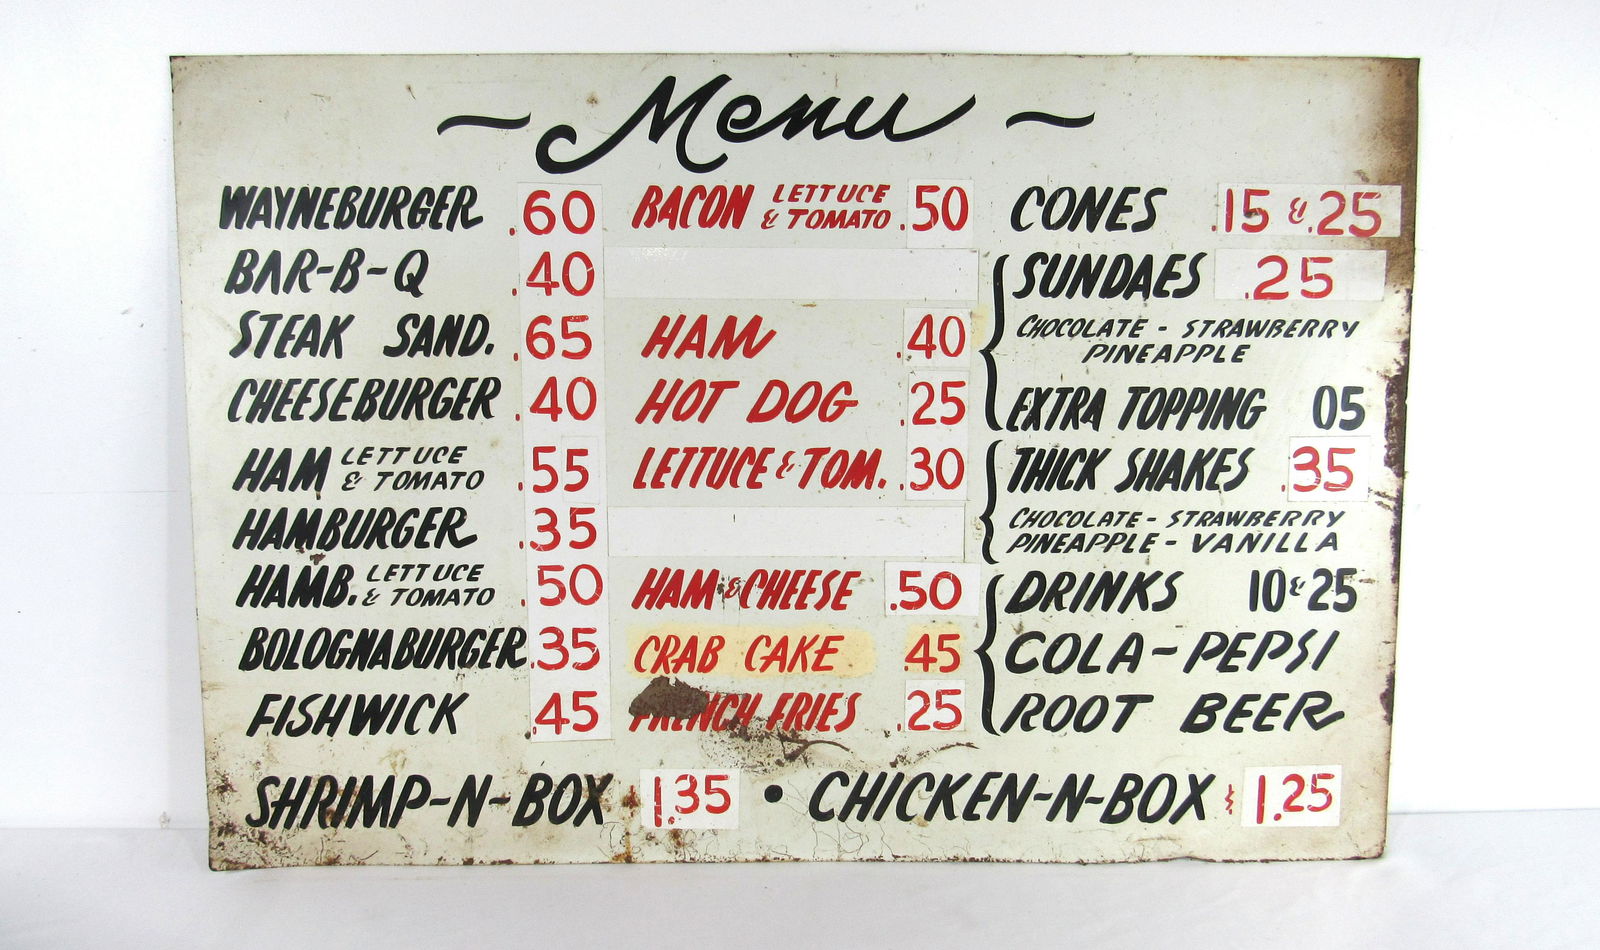 ~ Menu ~
WAYNEBURGER .60
BAR-B-Q .40
STEAK SAND. .65
CHEESEBURGER .40
HAM LETTUCE & TOMATO .55
HAMBURGER .35
HAMB. LETTUCE & TOMATO .50
BOLOGNABURGER .35
FISHWICK .45
BACON LETTUCE & TOMATO .50
HAM .40
HOT DOG .25
LETTUCE & TOM. .30
HAM & CHEESE .50
CRAB CAKE .45
FRENCH FRIES .25
CONES .15 & .25
SUNDAES .25
CHOCOLATE - STRAWBERRY
PINEAPPLE
EXTRA TOPPING 05
THICK SHAKES .35
CHOCOLATE - STRAWBERRY
PINEAPPLE - VANILLA
DRINKS 10 & 25
COLA - PEPSI
ROOT BEER
SHRIMP-N-BOX $1.35 • CHICKEN-N-BOX $1.25